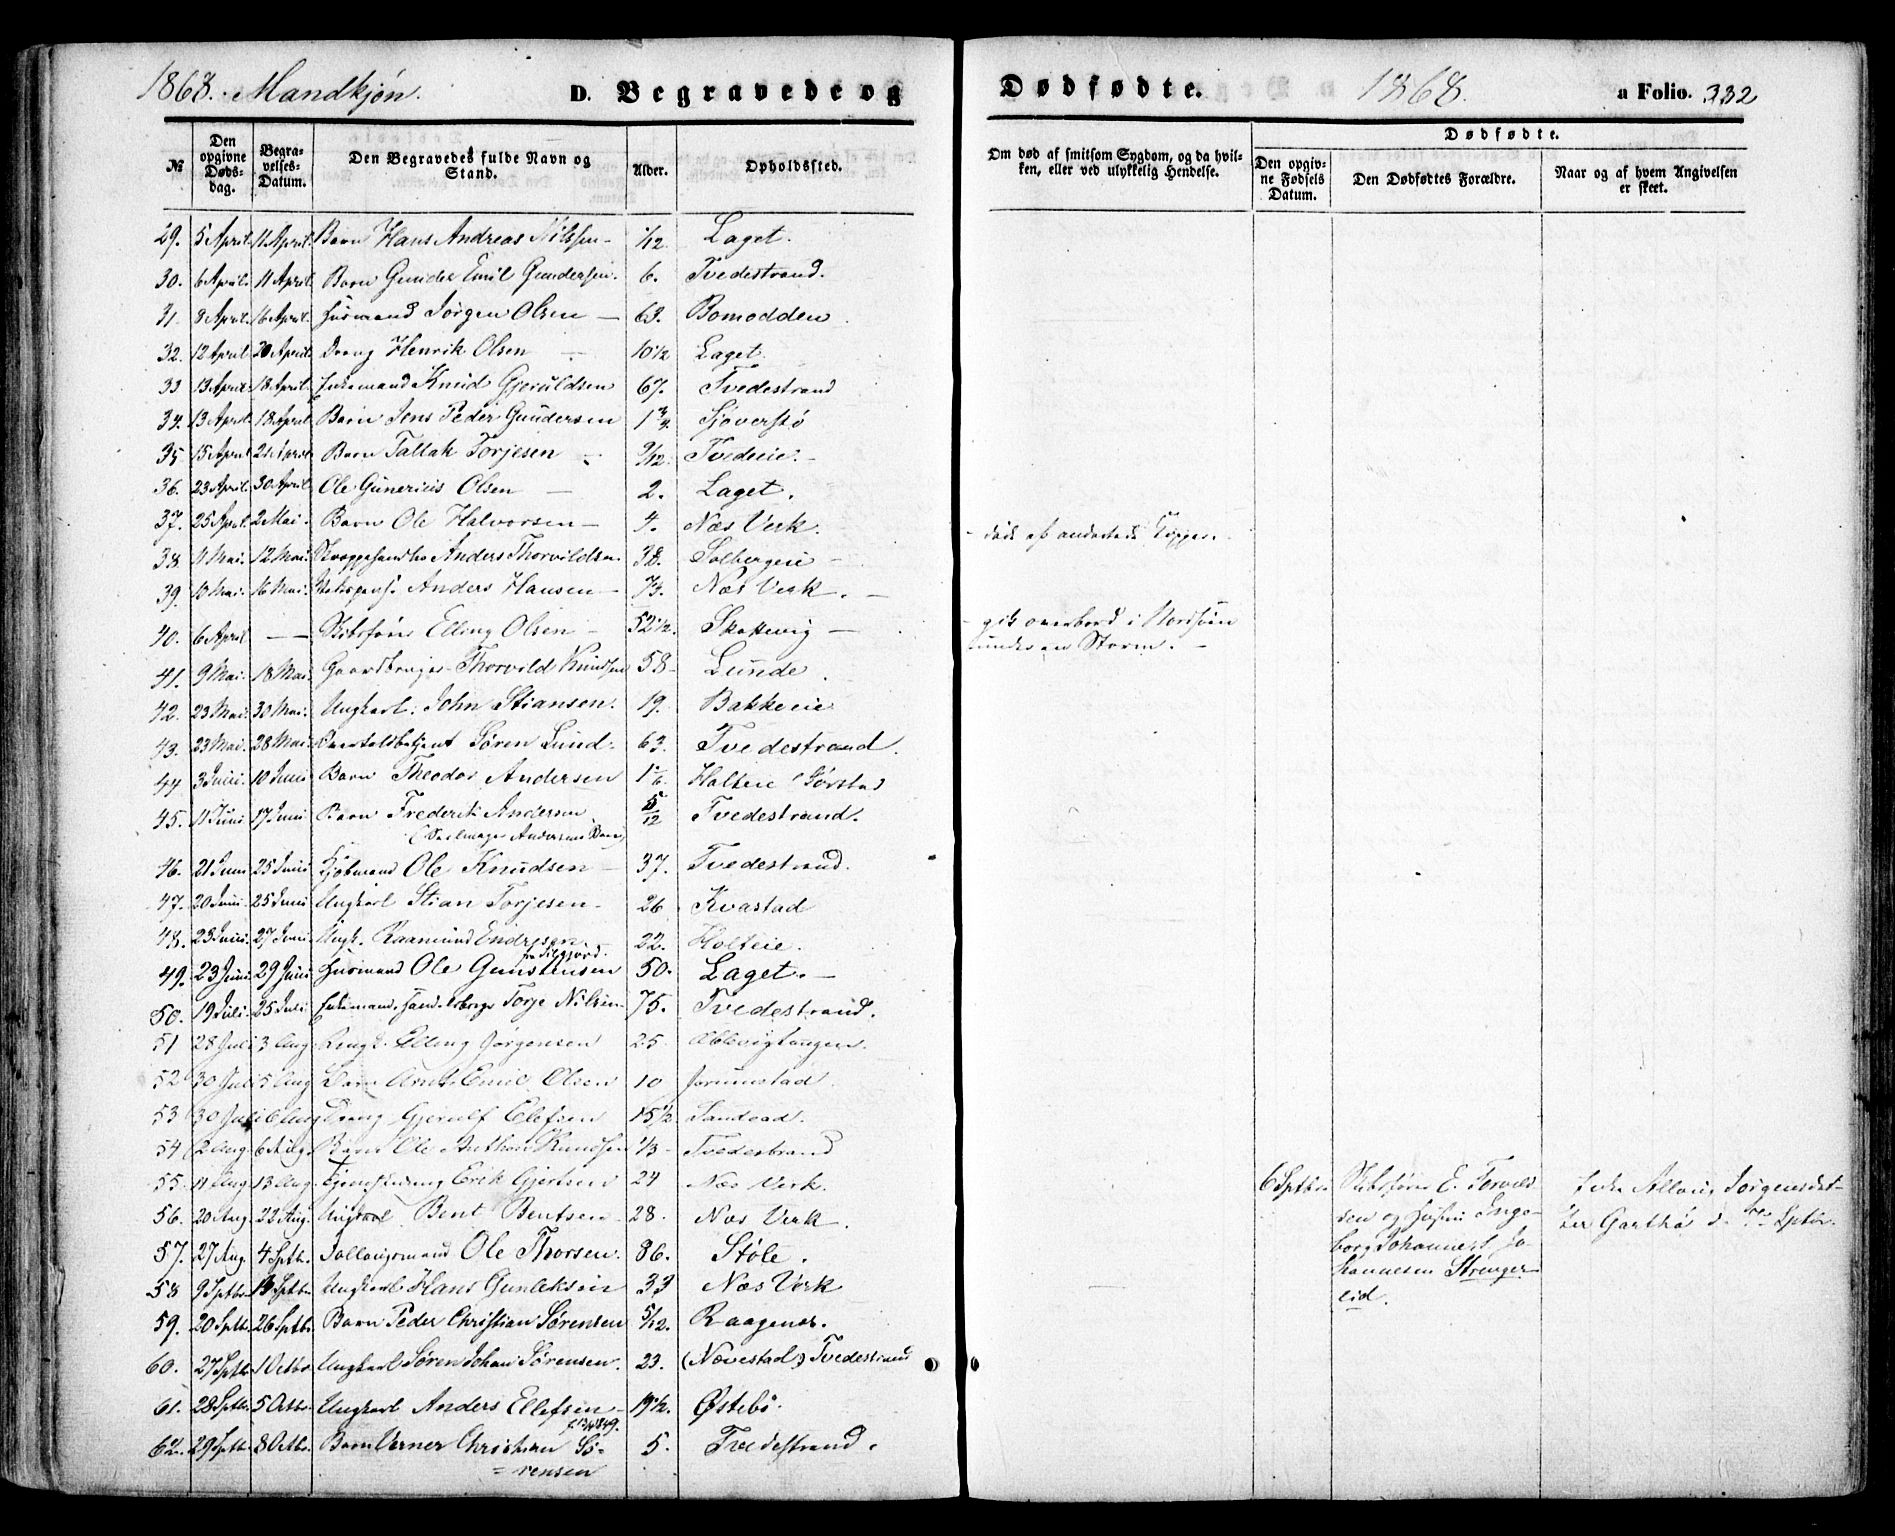 1868. Mandkjøn.
D. Begravede og
Dødfødte.
1868.
a Folio. 332
№
Den opgivne Døds-dag.
Begra-velses-Datum.
Den Begravedes fulde Navn og Stand.
Alder.
Opholdssted.
Om død af smitsom Sygdom, og da hvil-ken, eller ved ulykkelig Hendelse.
Dødfødte.
Den opgiv-ne Fødsels Datum.
Den Dødfødtes Forældre.
Naar og af hvem Angivelsen er skeet.
29. 5 April. 11 April. Barn Hans Andreas Nilssen 1/12 Laget.
30. 6 April. 11 April. Barn Gunder Emil Gundersen. 6. Tvedestrand.
31. 8 April. 16 April. Husmand Jørgen Olsen — 63. Bomodden
32. 12 April 20 April. Dreng Henrik Olsen — 10 1/2 Laget.
33 13 April. 18 April. Enkemand Knud Gjeruldsen 67. Tvedestrand
34. 13 April. 18 April Barn Jens Peder Gundersen 1 3/4 Sjøverstø
35 15 April 21 April. Barn Tallak Torjesen 9/12. Tvedeeie. -
36. 23 April. 30 April. Ole Gunerius Olsen — 2. Laget.
37. 25 April. 2 Mai. Barn Ole Halvorsen — 4. Næs Verk.
38. 11 Mai. 12 Mai. Anders Thorvildsen 38. Solbergeie —
39. 10 Mai. 16 Mai. Anders Hansen — 73. Næs Verk. —
40. 6 April — Skibsfører Elling Olsen — 52 1/2. Skottevig — gik overbord i Nordsøen
under en Storm. —
41. 9 Mai. 18 Mai. Gaardbruger Thorvild Knudsen 58 — Lunde
42. 23 Mai. 30 Mai. Ungkarl. John Stiansen. 19. Bakkeeie
43. 23 Mai. 28 Mai. Søren Lund. 63. Tvedestrand.
44 3 Juni. 10 Juni Barn Theodor Andersen 1 1/6. Holteie Gørstad
45. 11 Juni 17 Juni Barn Frederik Andersen 5/12 Tvedestrand.
(Seilmager Andersens Barn)
46. 21 Juni 25 Juni Kjøbmand Ole Knudsen — 37. Tvedestrand.
47. 20 Juni. 25 Juni Ungkarl Stian Torjesen — 26 Kvastad
48. 23 Juni. 27 Juni. Ungk. Raamund Endresen. — 22. Holteie.
49. 23 Juni. 29 Juni Husmand Ole Gunstensen 50. Laget. —
50. 19 Juli. 25 Juli. Enkemand Torje Nilsen 75. Tvedestrand.
51 28 Juli 3 Aug. Ungk. Elling Jørgensen 25.
52 30 Juli 5 Aug Barn Arnt Emil Olsen 10 Jorunstad.
53 30 Juli 6 Aug Dreng Gjerulf Elefsen 15 1/2 Sandvad.
54 2 Aug. 6 Aug. Barn Ole Anthon Knudsen 1/3 Tvedestrand
55. 11 Aug 13 Aug. Erik Gjertsen 24 Næs Verk.
56. 20 Aug. 22 Aug. Ungkarl Bent Bentsen — 28. Næs Verk.
57. 27 Aug. 4 Sptb. Ole Thorsen. 86. Støle.
58 9 Sptbr. Ungkarl Hans Gunleksen 33 Næs Verk
59. 20 Sptb. 26 Sptbr. Barn Peder Christian Sørensen 5/12. Raagenes.
60. 27 Sptb. 1 Octbr. Ungkarl Søren Johan Sørensen. 23. (Nævestad) Tvedestrand
61. 28 Sptb. 5 Octbr. Ungkarl Anders Ellefsen — 19 1/2. Østebø.
62. 29 Sptb. 8 Octbr. Barn Verner Christian Sø= 5. Tvedestrand.
= rensen
6 Sptbr. Skibsfører E. Torvild
sen og Hustru Inge-
borg Johanne Jo-
hannesen Strenger-
eid.
Jorgensdat-
ter Garthø d. 7de Sptbr.